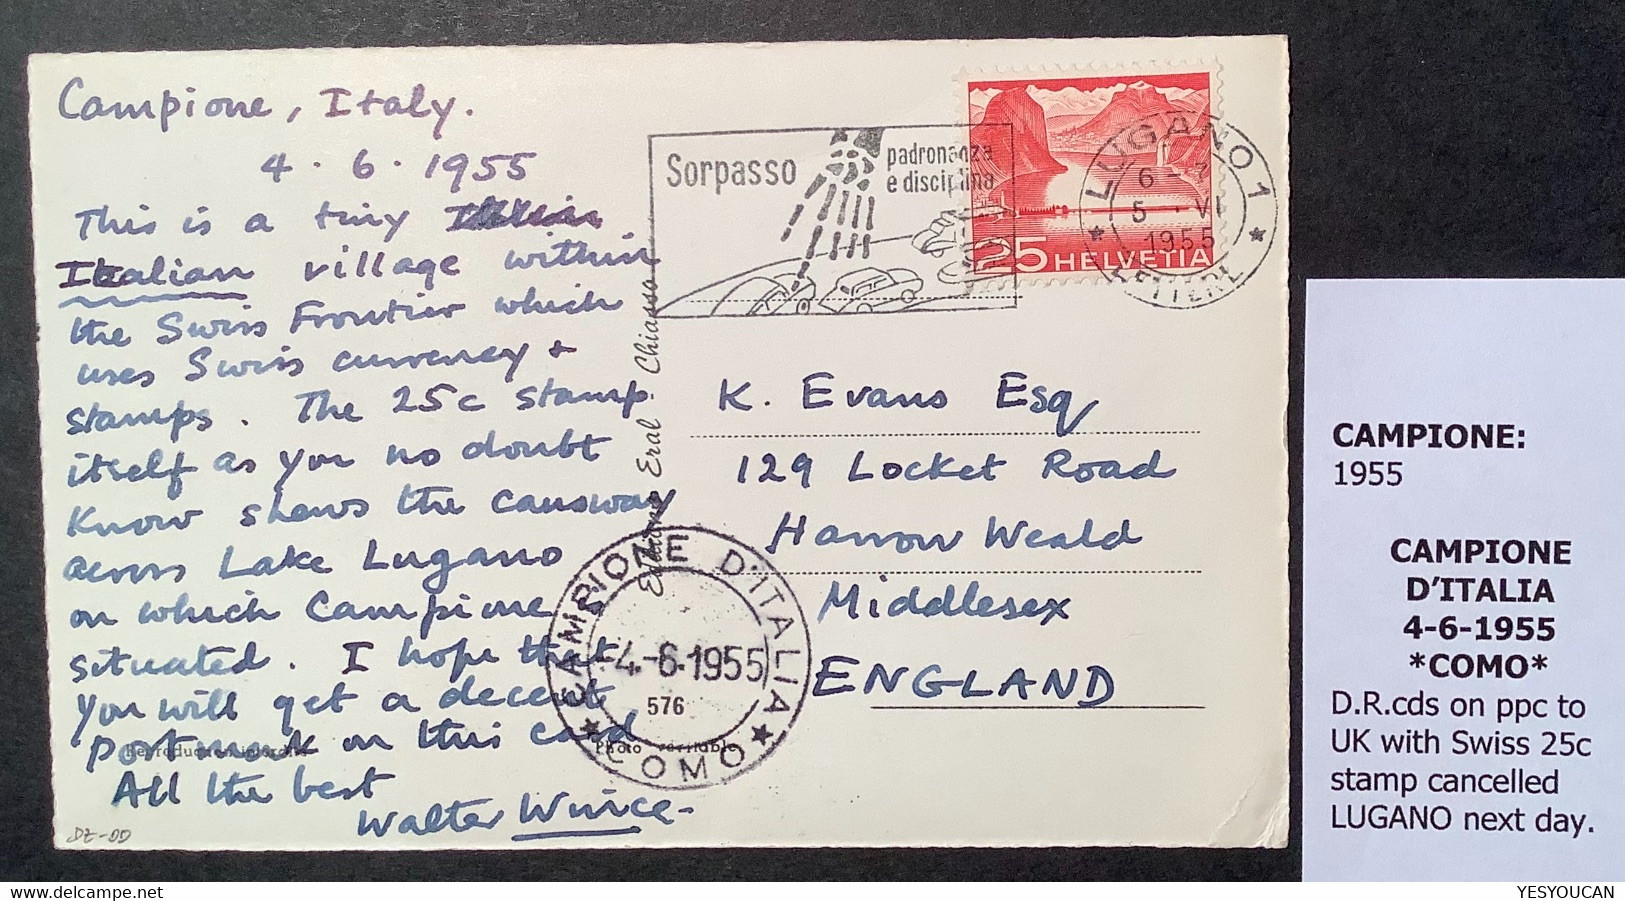 Campione, Italy.
4.6.1955
This is a tiny
Italian village within
the Swiss Frontier which
uses Swiss currency +
stamps. The 25c stamp
itself as you no doubt
know shows the causway
across Lake Lugano
on which Campione
situated. I hope that
you will get a decent
postmark on this card
All the best
Walter
DZ-00
Reproduction interdite
Editions Eral - Chiasso
Photo véritable
Sorpasso
padronanza
e disciplina
25 HELVETIA
LUGANO 1
6 -
5 - VI
1955
LETTERE
K. Evans Esq
129 Locket Road
Harrow Weald
Middlesex
ENGLAND
CAMPIONE D'ITALIA
-4.-6.1955
576
★ COMO ★
CAMPIONE:
1955
CAMPIONE
D'ITALIA
4-6-1955
*COMO*
D.R.cds on ppc to
UK with Swiss 25c
stamp cancelled
LUGANO next day.
YESYOUCAN